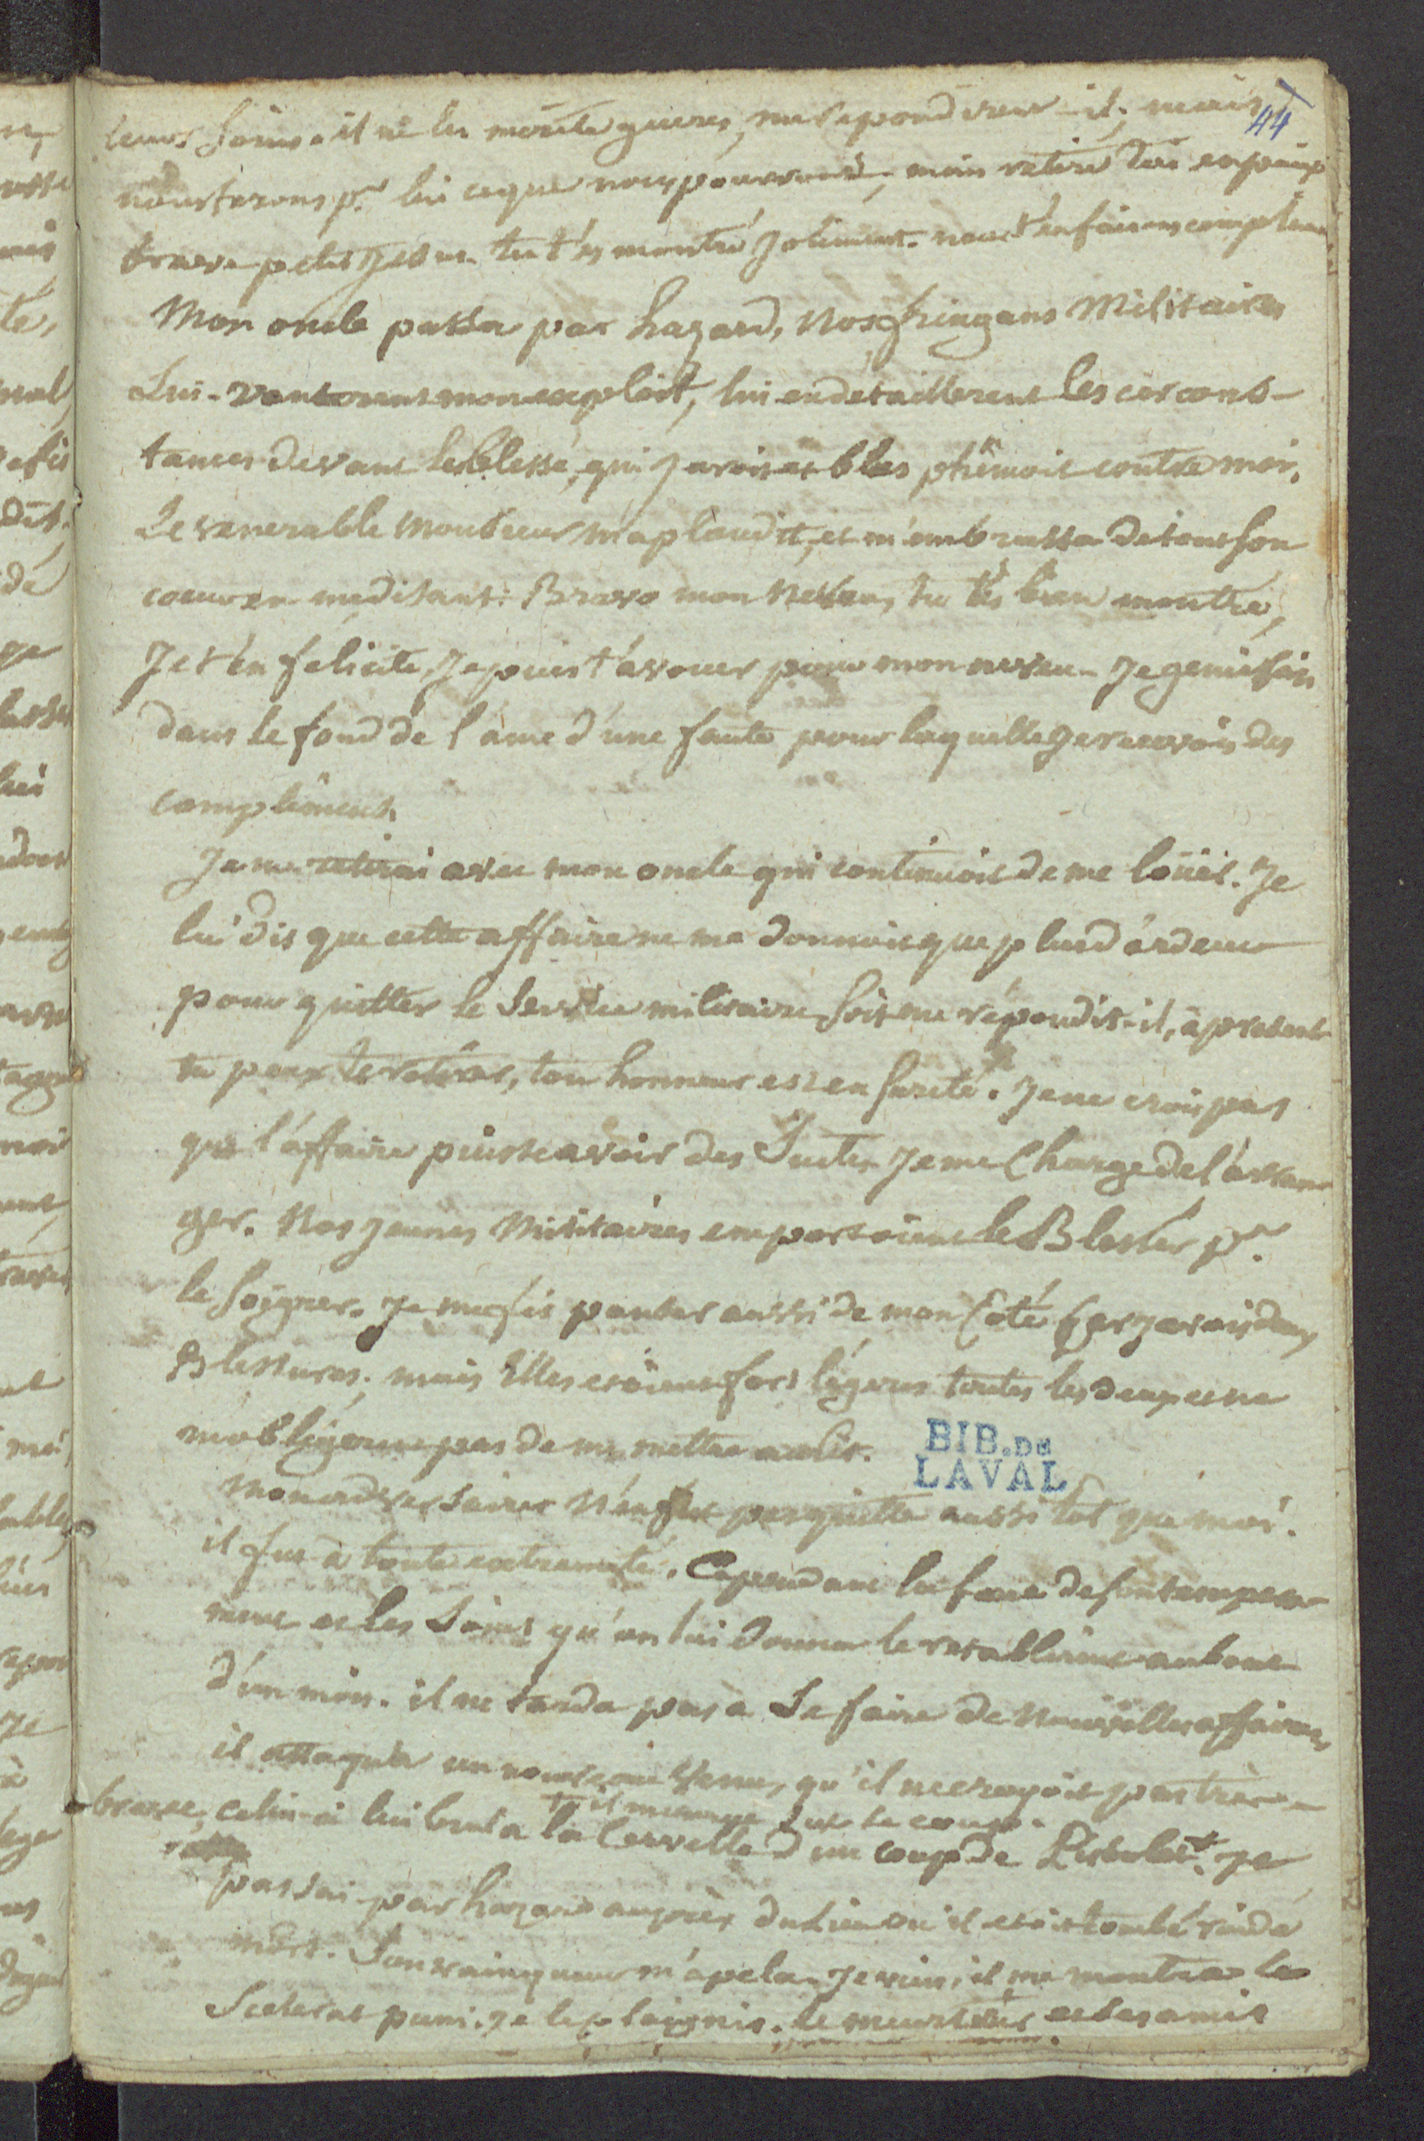 44
leurs soins. il ne les merite gueres, me repondirent-il. mais
nous ferons pr. lui ce que nous pourrons, mais retire toi en paix
brave petit tu t'és montré joliment. nous t'en faisons compliment
Mon oncle passa par hazard, Nos fringans Militaires
Lui vanterent mon exploit, lui en detaillerent les circons-
tances devant le blessé, qui juroit et blasphêmoit contre moi.
Le venerable Monsieur m'aplaudit, et m'embrassa de tout son
coeur en me disant: Bravo mon Neveu, tu t'és bien montré,
Je t'en felicite, Je puis t'avouer pour mon neveu. Je gemissois
dans le fond de l'ame d'une faute pour laquelle Je recevois des
complimens.
Je me retirai avec mon oncle qui continuoit de me loüer. Je
lui dis que cette affaire ne me donnoit que plus d'ardeur
pour quitter le Service militaire soit me répondit-il, à present
tu peux te retirer, ton honneur est en sureté. Je ne crois pas
que l'affaire puisse avoir des Suites Je me Charge de l'arran
ger. Nos jeunes Militaires emportoient le Blessé pr.
le soigner. Je me fis panser aussi de mon Coté car j'avais deux
Blessures; mais Elles etoient fort légeres toutes les deux et ne
m'obligerent pas de me mettre au lit.
BIB. DE
LAVAL
Mon adversaire N'en fut pas quitte aussi tot que moi.
il fut à toute extremité. Cependant la force de son tempera-
ment et les Soins qu'on lui donna le retablirent au bout
d'un mois. il ne tarda pas a Se faire de Nouvelles affaires
il attaqua un nouveau Venu, qu'il ne croyoit pas très-
il mourut sur le coup.
brave, celui-ci lui brula la Cervelle d'un coup de Pistolet. Je
passai par hazard auprès du Lieu où il etoit tombé roide
mort. Son vainqueur m'apela. Je vins, il me montra le
Scelerat puni. Je le plaignis. le meurtrier et ses amis